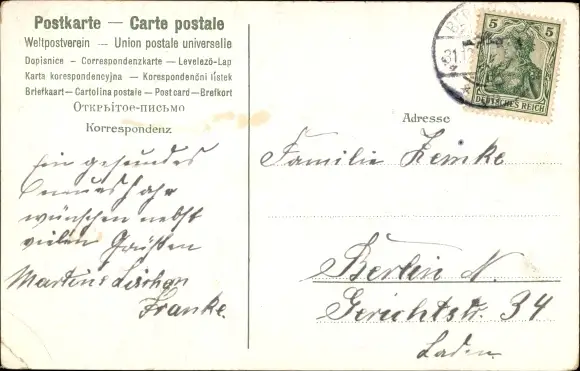 Postkarte — Carte postale
Weltpostverein — Union postale universelle
Dopisnice - Correspondenzkarte — Levelező-Lap
Karta korespondencyjna — Korespondenční lístek
Briefkaart — Cartolina postale — Postcard — Brefkort
Открытое-письмо
Korrespondenz
Adresse
5 5
DEUTSCHES REICH
Ein gesundes
neues Jahr
wünschen nebst
vielen Grüßen
Franke.
Familie Zemke
Berlin N.
Gerichtstr. 34
Laden.